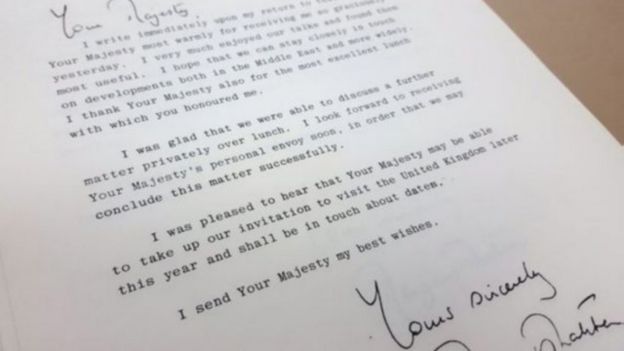 Your Majesty,
I write immediately upon my return to
Your Majesty most warmly for receiving me so graciously
yesterday. I very much enjoyed our talks and found them
most useful. I hope that we can stay closely in touch
on developments both in the Middle East and more widely.
I thank Your Majesty also for the most excellent lunch
with which you honoured me.
I was glad that we were able to discuss a further
matter privately over lunch. I look forward to receiving
Your Majesty's personal envoy soon, in order that we may
conclude this matter successfully.
I was pleased to hear that Your Majesty may be able
to take up our invitation to visit the United Kingdom later
this year and shall be in touch about dates.
I send Your Majesty my best wishes.
Yours sincerely